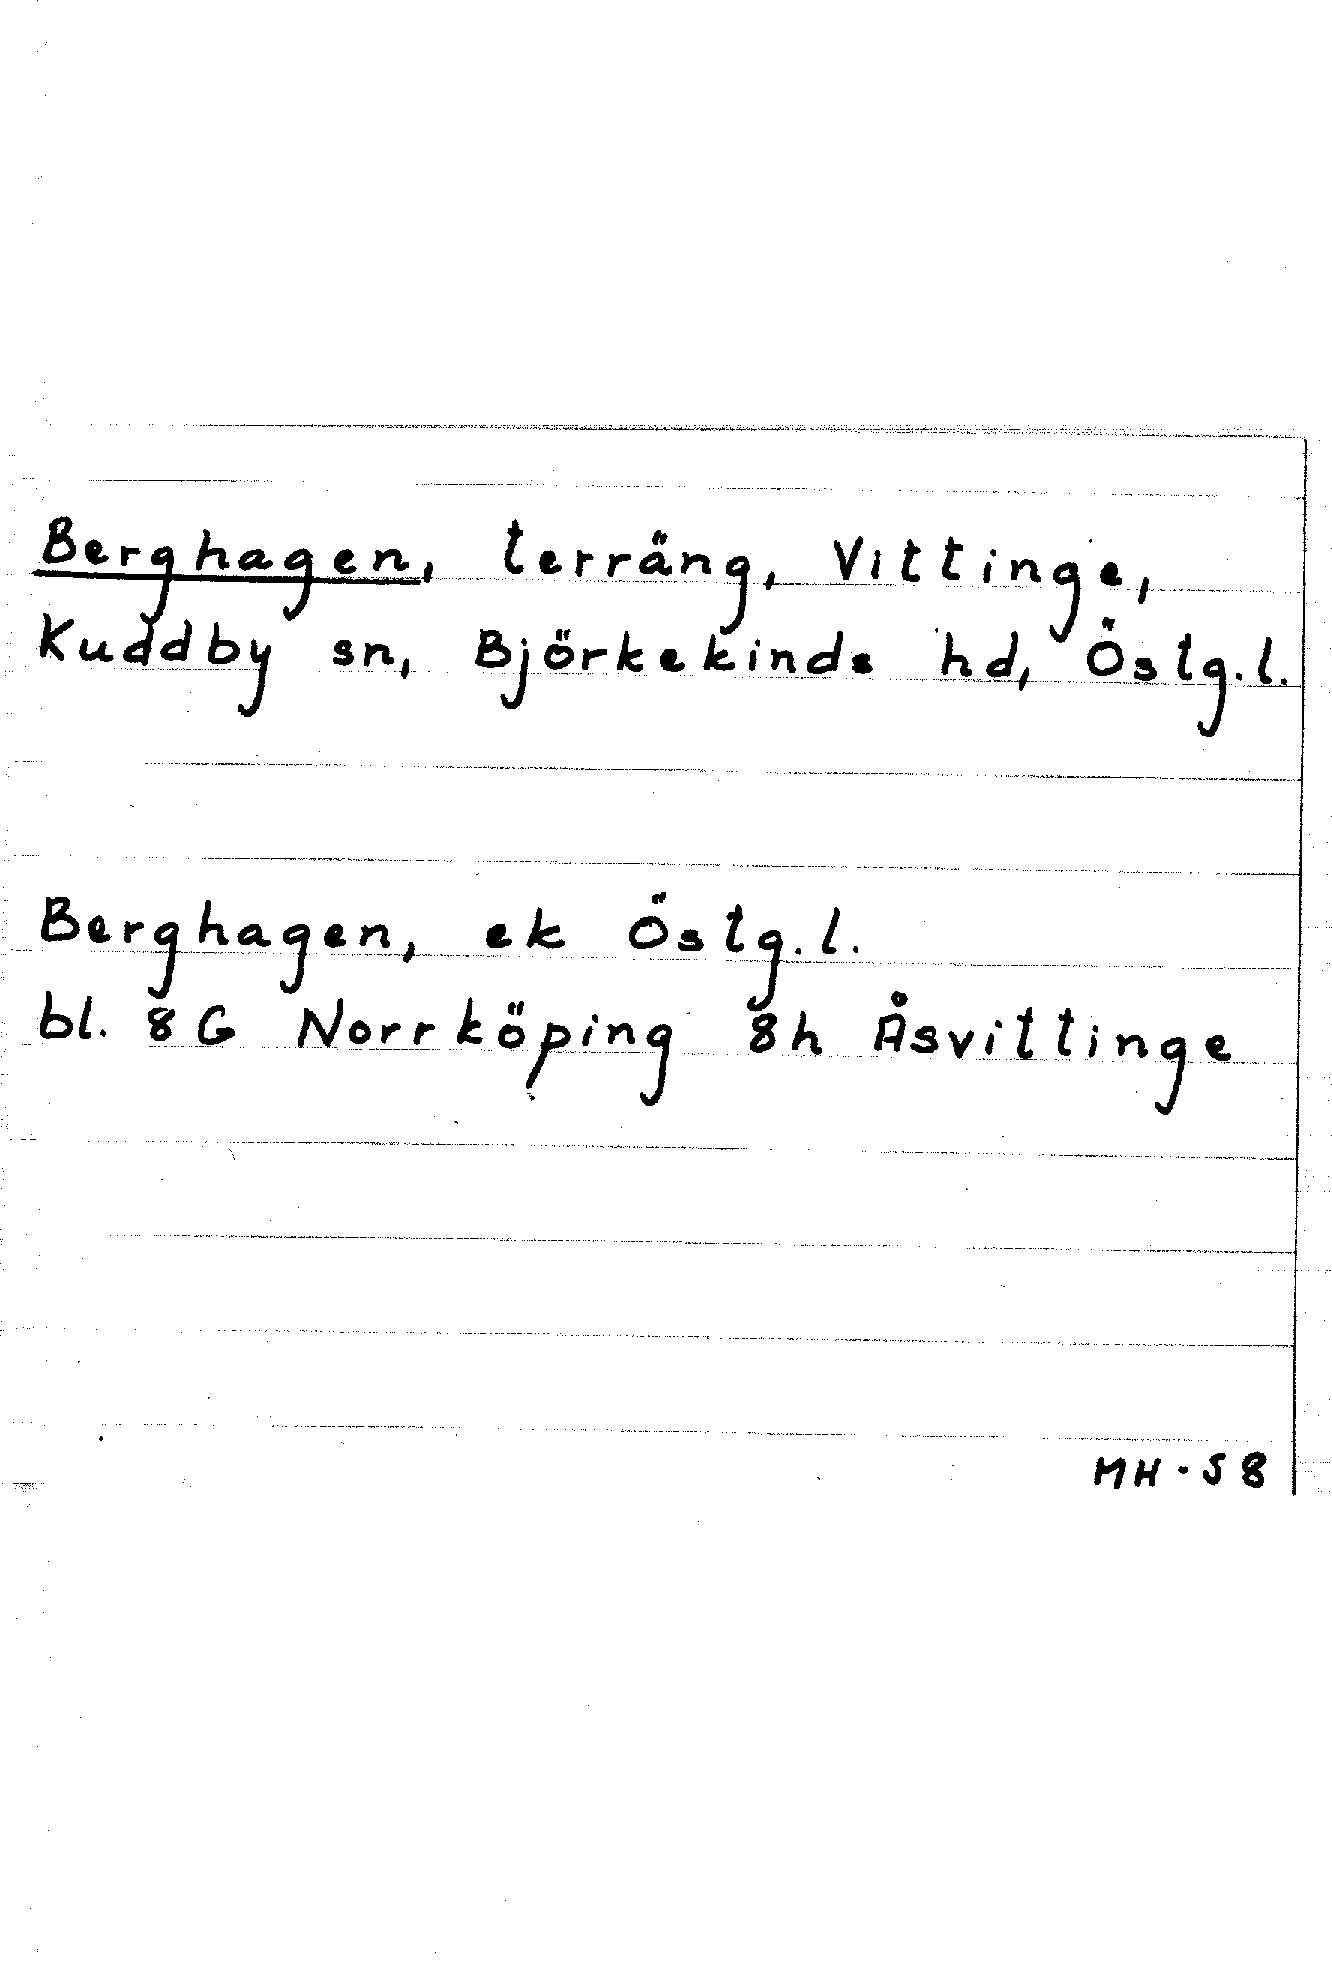 Berghagen, terräng, Vittinge,
Kuddby sn, Björkekinds hd, Östg.l.
Berghagen, ek Östg.l.
bl. 8G Norrköping 8h Åsvittinge
MH-58